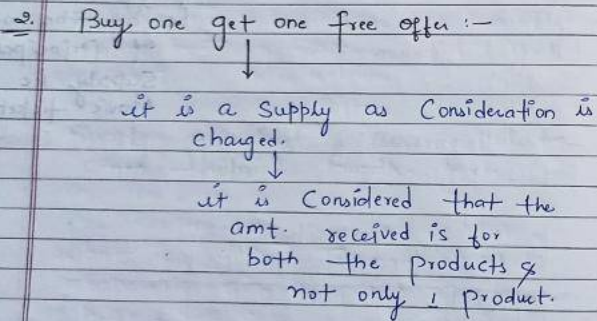 2. Buy one get one free offer :-
it is a Supply as Consideration is
charged.
it is Considered that the
amt. received is for
both the products &
not only 1 product.